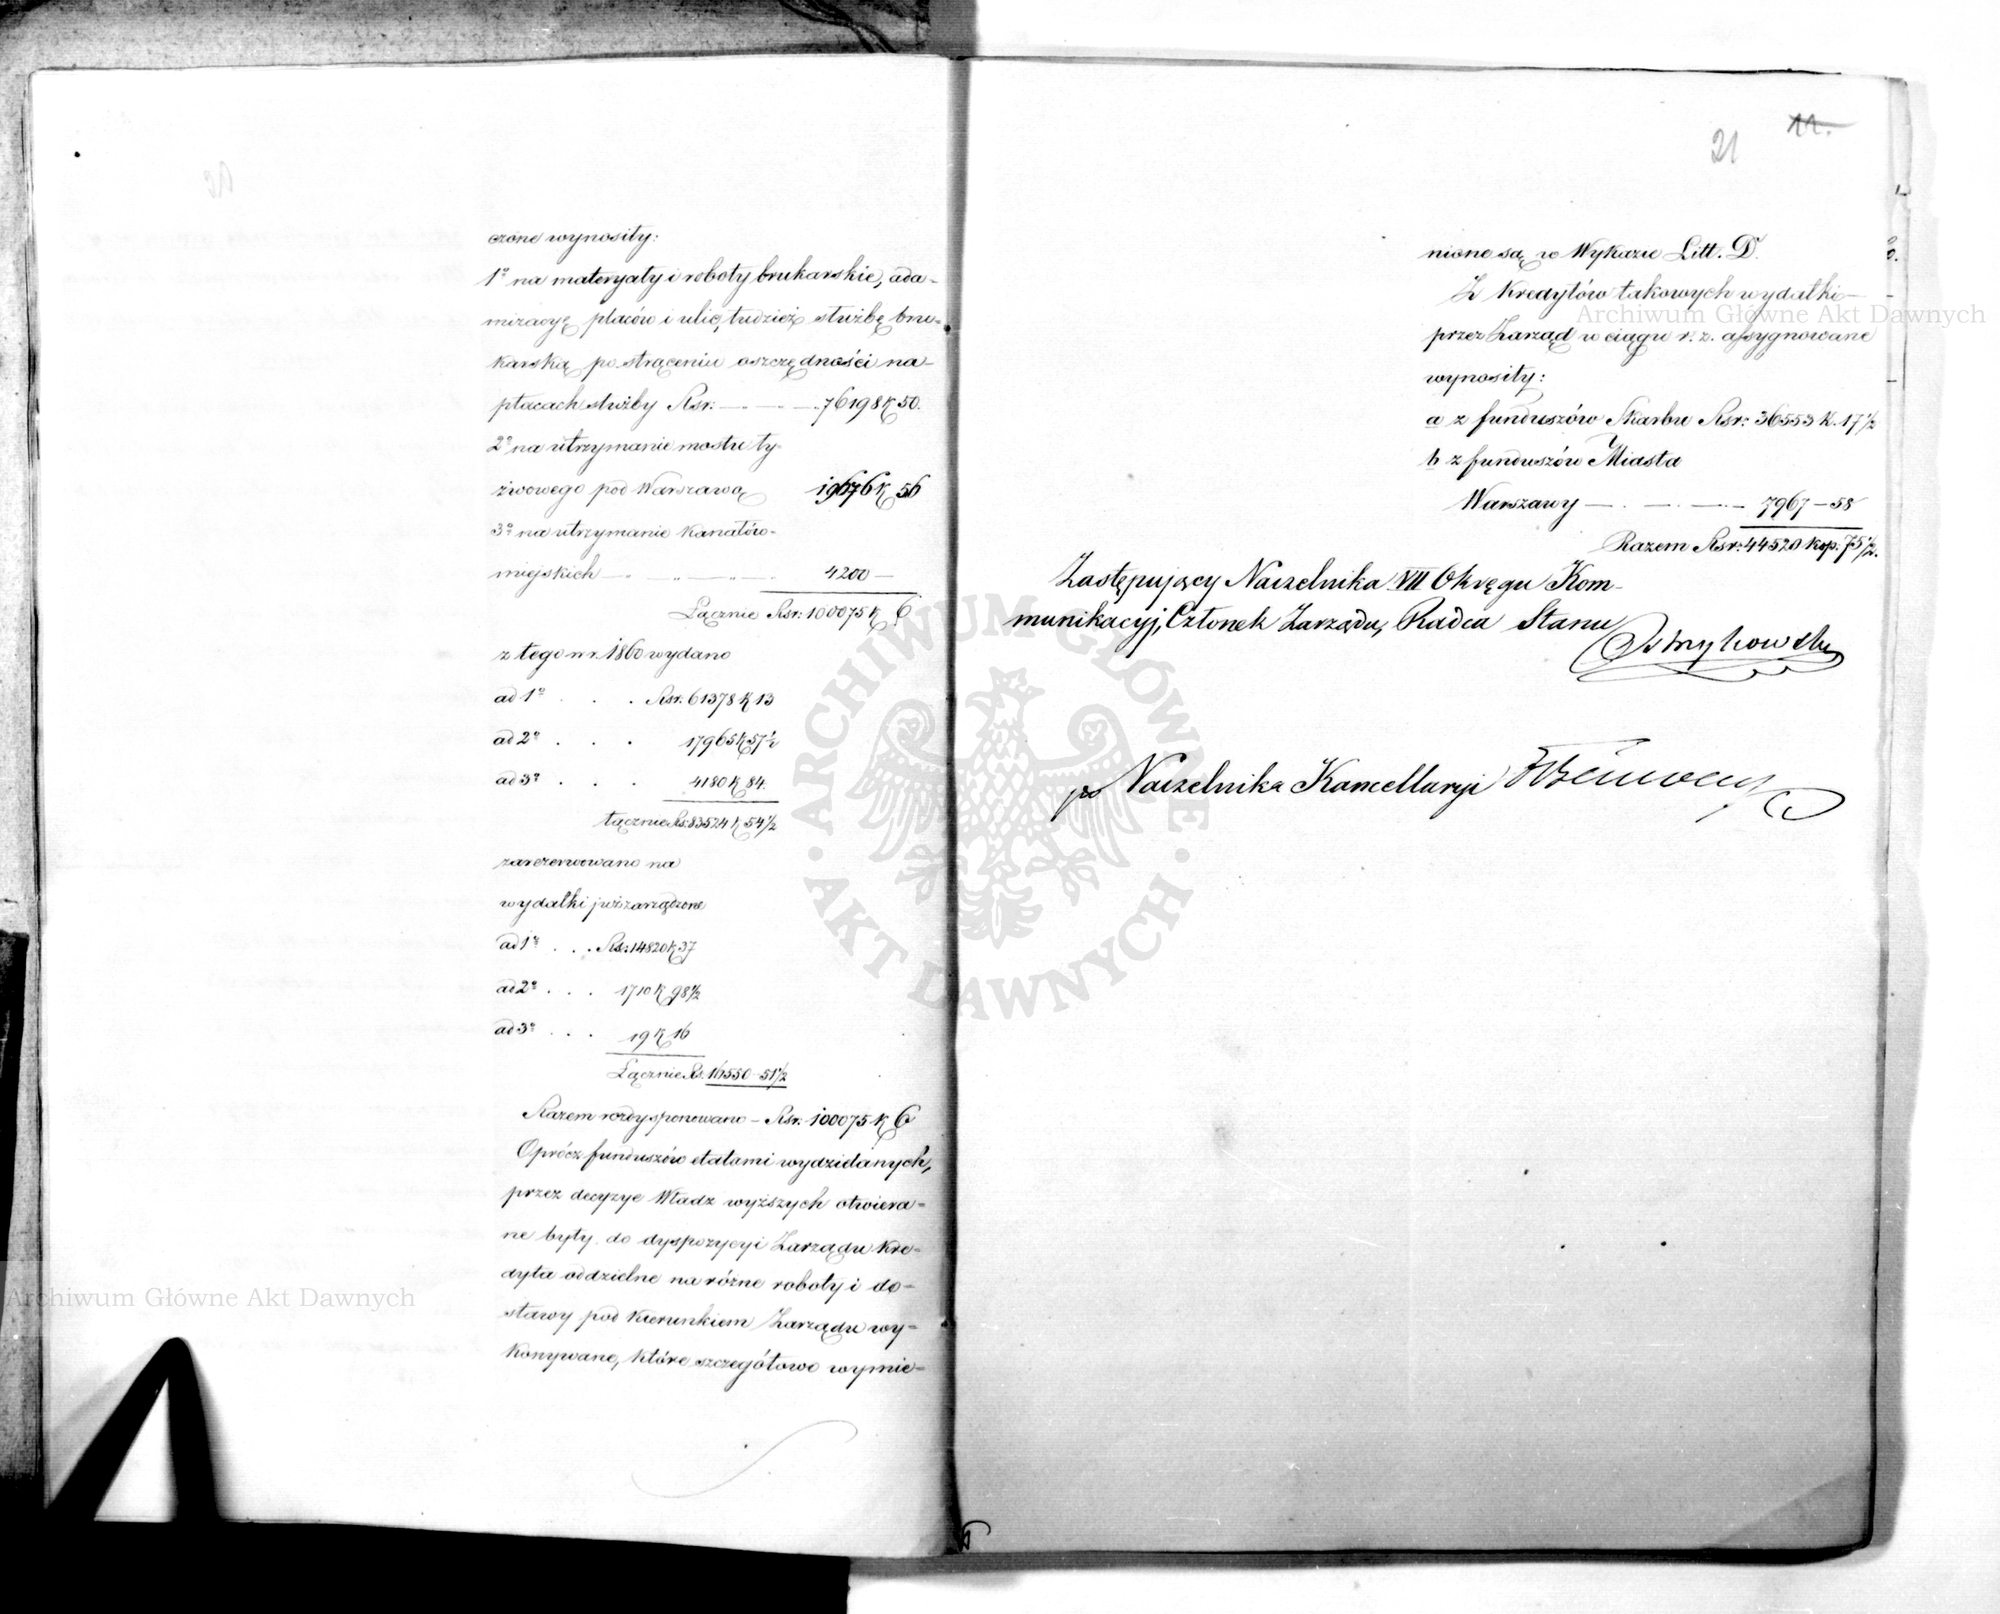 czone wynosiły:
1º na materyały i roboty brukarskie, ada-
mizacyę placów i ulic, tudzież służbę bru-
karską po strąceniu oszczędności na
płacach służby Rsr. 76198 K 50.
2º na utrzymanie mostu ły-
żwowego pod Warszawą 19676 K 56
3º na utrzymanie kanałów
miejskich 4200 —
Łącznie Rsr: 100075 K 6
z tego w r. 1860 wydano
ad 1º . . . Rsr. 61378 K 13
ad 2º . . . 17965 K 57½
ad 3º . . . 4180 K 84.
łącznie Rs: 83524 K 54½
zarezerwowano na
wydatki już zarządzone
ad 1º . . . Rsr: 14820 K 37
ad 2º . . . 1710 K 98½
ad 3º . . . 19 K 16
Łącznie Rs. 16550 - 51½
Razem rozdysponowano - Rsr. 100075 K 6
Oprócz funduszów etatami wydzielanych,
przez decyzye Władz wyższych otwiera-
ne były do dyspozycyi Zarządu kre-
dyta oddzielne na różne roboty i do-
stawy pod kierunkiem Zarządu wy-
konywane, które szczegółowo wymie-
21 11.
nione są w Wykazie Litt. D.
Z kredytów takowych wydatki
przez Zarząd w ciągu r. z. assygnowane
wynosiły:
a z funduszów Skarbu Rsr: 36553 K. 17½
b z funduszów Miasta
Warszawy — 7967 — 58
Razem Rsr: 44520 kop. 75½.
Zastępujący Naczelnika VII Okręgu Kom-
munikacyj, Członek Zarządu, Radca Stanu
po Naczelnika Kancellaryi
Archiwum Główne Akt Dawnych
Archiwum Główne Akt Dawnych
ARCHIWUM GŁÓWNE · AKT DAWNYCH ·